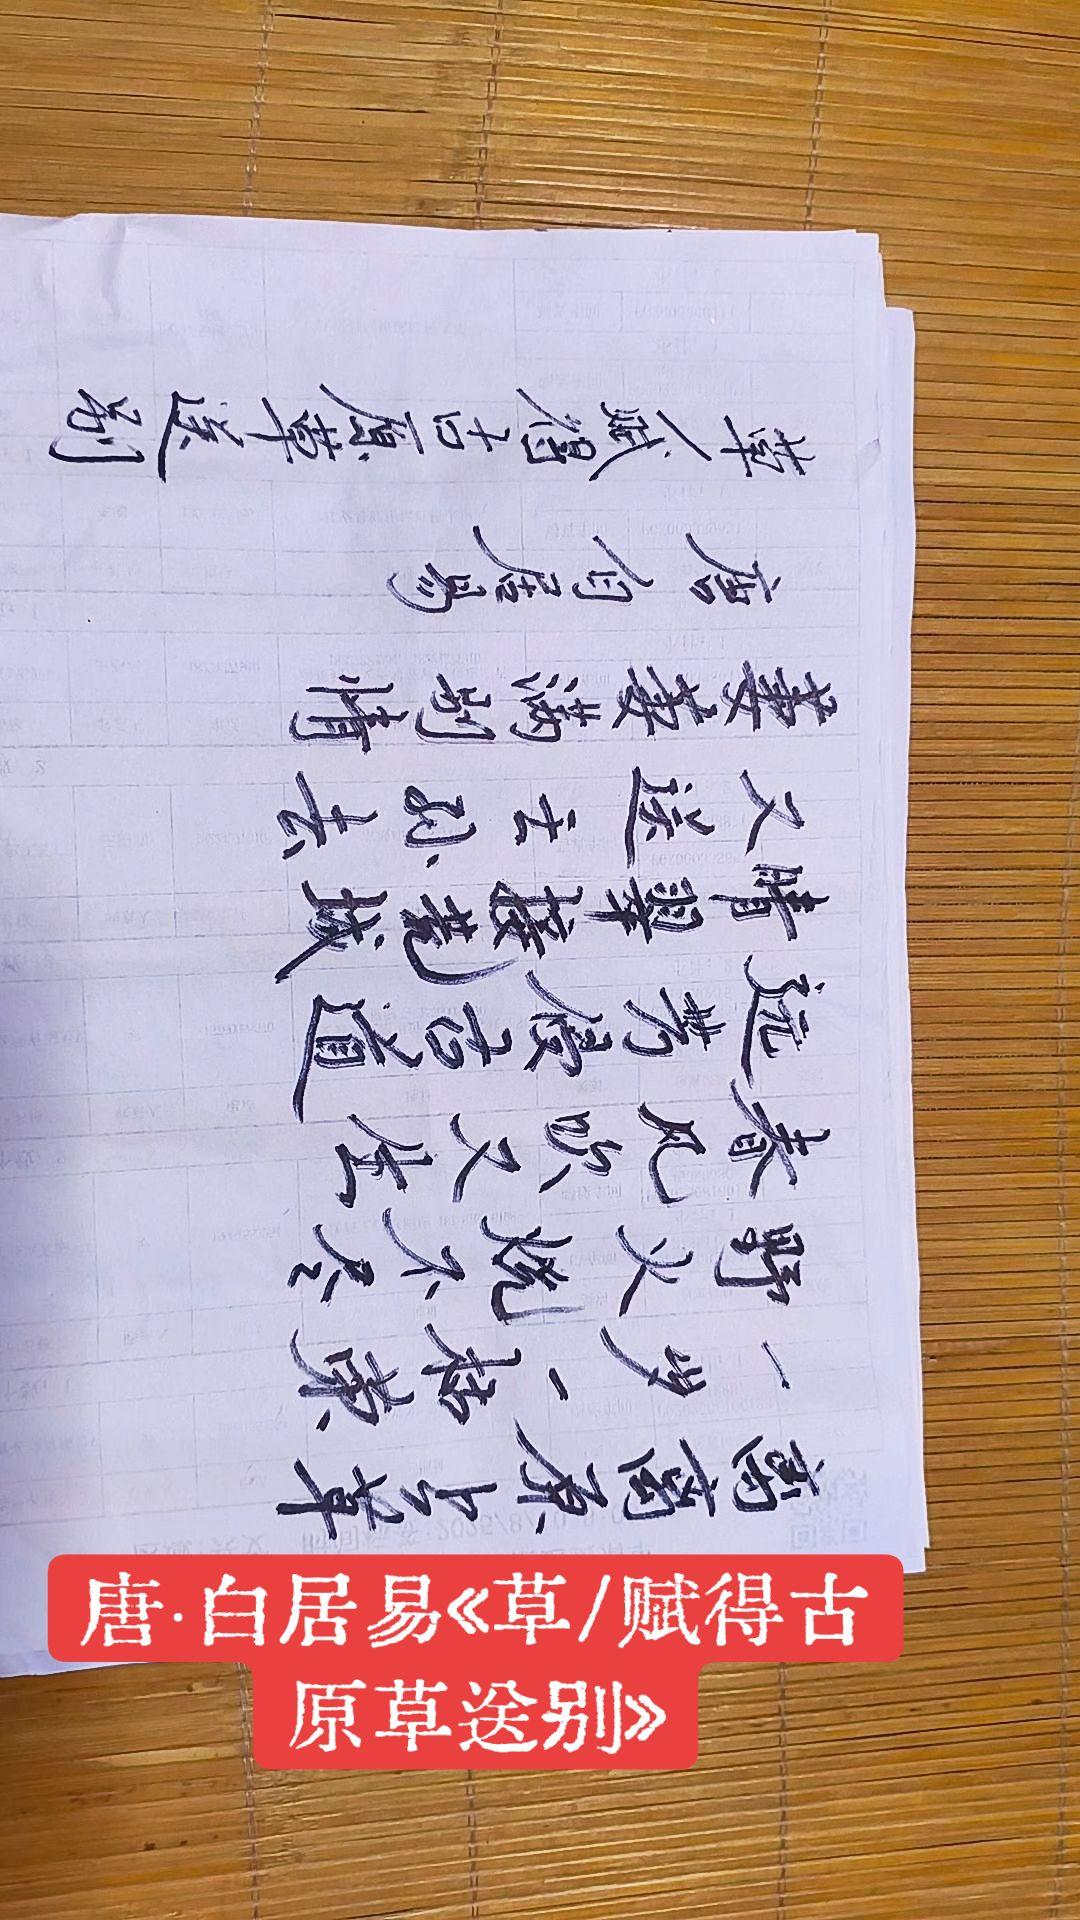 离离原上草
一岁一枯荣
野火烧不尽
春风吹又生
远芳侵古道
晴翠接荒城
又送王孙去
萋萋满别情
唐白居易
草/赋得古原草送别
唐·白居易《草/赋得古
原草送别》